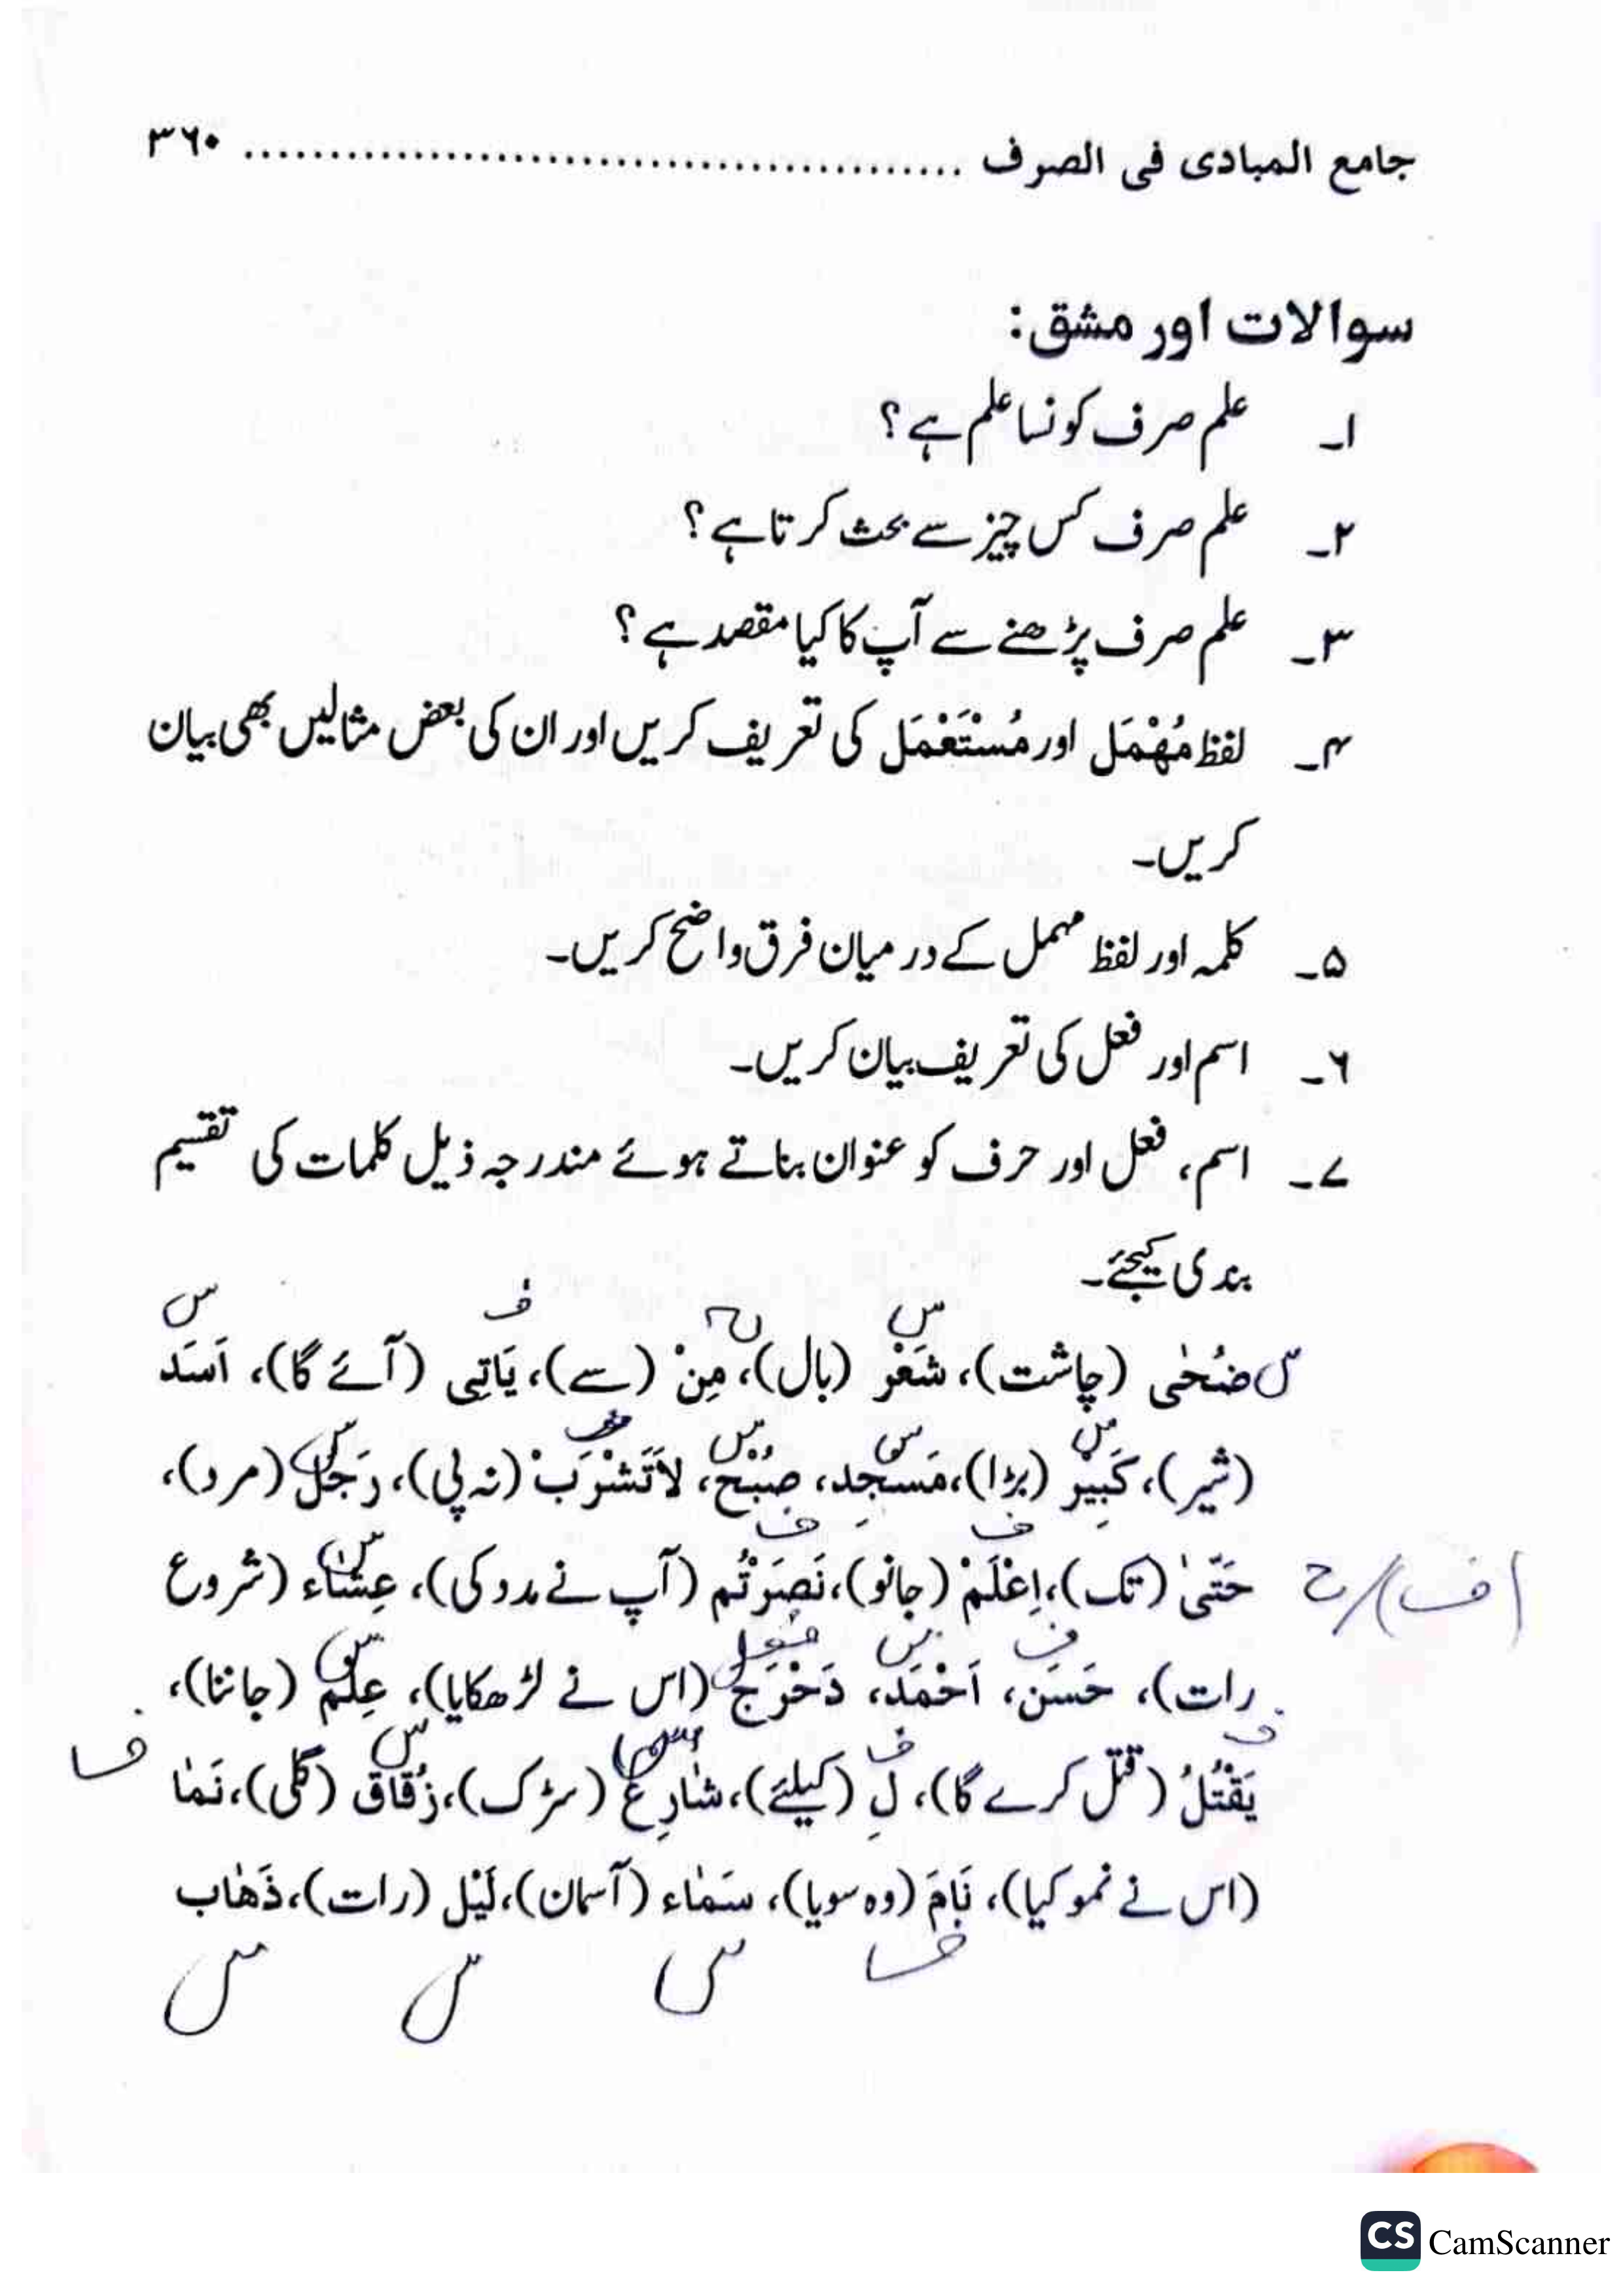 جامع المبادی فی الصرف ............................................ ٣٦٠
سوالات اور مشق:
۱۔ علم صرف کونسا علم ہے؟
۲۔ علم صرف کس چیز سے بحث کرتا ہے؟
۳۔ علم صرف پڑھنے سے آپ کا کیا مقصد ہے؟
۴۔ لفظ مُهْمَل اور مُسْتَعْمَل کی تعریف کریں اور ان کی بعض مثالیں بھی بیان
کریں۔
۵۔ کلمہ اور لفظ مہمل کے درمیان فرق واضح کریں۔
٦۔ اسم اور فعل کی تعریف بیان کریں۔
۷۔ اسم، فعل اور حرف کو عنوان بناتے ہوئے مندرجہ ذیل کلمات کی تقسیم
بندی کیجئے۔
س ح ف س
س ضُحٰی (چاشت)، شَعْر (بال)، مِنْ (سے)، یَاتِی (آئے گا)، اَسَد
س س س س
(شیر)، کَبِیْر (بڑا)، مَسجِد، صُبْح، لاَتَشْرَبْ (نہ پی)، رَجُل (مرد)،
ف ف س
حَتّیٰ (تک)، اِعْلَمْ (جانو)، نَصَرْتُم (آپ نے مدد کی)، عِشٰاء (شروع
ح/(ف)
ف س فعل س
رات)، حَسَن، اَحْمَد، دَحْرَجَ (اس نے لڑھکایا)، عِلْم (جاننا)،
ف ف س س ف
یَقْتُلُ (قتل کرے گا)، لِ (کیلئے)، شٰارِع (سڑک)، زُقَاق (گلی)، نَمٰا
(اس نے نمو کیا)، نَامَ (وہ سویا)، سَمٰاء (آسمان)، لَیْل (رات)، ذَهٰاب
ف س س س
CS CamScanner